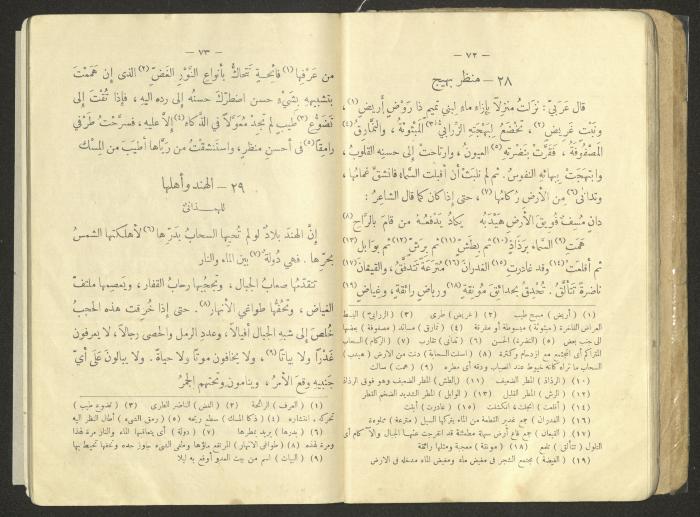 — ٧٢ —
٢٨ – منظر بهيج
قال عَرَبيّ : نَزلتُ منزِلاً بإزاء ماء لبني تميم ذا رَوْضٍ أَرِيضٍ (١) ،
ونَبْتٍ غَرِيضٍ (٢) ، تَخضَعُ لِبَهْجَتِهِ الزَّرابيّ (٣) المبثوثةُ ، والنَّمارقُ (٤)
المَصْفُوفَةُ ، فَقَرَّتْ بنَضرتِهِ (٥) العيونُ ، وارتاحتْ إلى حسنِه القلوبُ ،
وابتهجَتْ بِبهائِه النفوسُ . ثم لم نَلبَثْ أن أقبلت السَّماءُ فانشقَّ غَمامُها ،
وتدانَى (٦) مِن الأرضِ رُكامُها (٧) ، حتى إذا كان كما قال الشاعرُ :
دانٍ مُسِفٌّ فُوَيقَ الأَرضِ هَيْدَبُهُ يكادُ يَدْفَعُهُ من قامَ بالرَّاحِ (٨)
هَمَتِ (٩) السَّماءُ بِرَذَاذٍ (١٠) ثم بِطَشٍّ (١١) ثم بِرَشٍّ (١٢) ثم بوَابِلٍ (١٣)
ثم أقلعَتْ (١٤) وقد غادرتِ (١٥) الغدرانَ (١٦) مُترَعَةً تتدفَّقُ ، والقيعانَ (١٧)
ناضرةً تتألَّقُ . تُحْدِقُ بحدائقَ مُونِقَةٍ (١٨) ورياضٍ رائقةٍ ، وغِياضٍ (١٩)
(١) ( أريض ) معجب طيب (٢) ( غريض ) طرى (٣) ( الزرابى ) البسط
الفاخرة ( مبثوثة ) مبسوطة أو مفرقة (٤) ( نمارق ) مساند ( مصفوفة ) بعضها
الى جنب بعض (٥) ( النضرة ) الحسن (٦) ( تدانى ) تقارب (٧) ( الركام ) السحاب
المتراكم أى المجتمع مع ازدحام وكثرة (٨) ( أسفت السحابة ) دنت من الأرض ( هيدب )
السحاب ما تراه كأنه خيوط عند انصباب ودقه أى مطره (٩) ( همت ) سالت
(١٠) ( الرذاذ ) المطر الضعيف (١١) ( الطش ) المطر الضعيف وهو فوق الرذاذ
(١٢) ( الرش ) المطر القليل (١٣) ( الوابل ) المطر الشديد الضخم القطر
(١٤) ( أقلعت ) انجلت ، انكشفت (١٥) ( غادرت ) أبقت
(١٦) ( الغدران ) جمع غدير القطعة من الماء يتركها السيل ( مترعة ) مملوءة
(١٧) ( القيعان ) جمع قاع أرض سهلة مطمئنة قد انفرجت عنها الجبال والآكام أى
التلول ( تتألق ) تلمع (١٨) ( مونقة ) معجبة ومثلها رائقة
(١٩) ( الغيضة ) مجتمع الشجر فى مغيض ماء ومغيض الماء مدخله فى الارض
— ٧٣ —
من عَرْفِها (١) فائحةٍ تَتحاكُّ بأنواع النَّوْرِ الغَضِّ (٢) الذى إن هَمَمْتَ
بتشبيهه بشىءٍ حسن اضطرّكَ حسنُه إلى رده اليه ، فإذا تُقْتَ إلى
تَضَوُّع (٣) طيبٍ لم تَجِدْ مُعَوَّلاً في الذَّكاء (٤) إلَّا عليه ، فسرَّحْتُ طَرْفي
رامِقًا (٥) فى أحسنِ منظرٍ ، واستنشقْتُ من رَيّاها أطيَبَ من المِسْك
٢٩ – الهند وأهلها
للهمذانيّ
إنَّ الهندَ بلادٌ لو لم تُحيِها السحابُ بدَرِّها (٦) لأهلكتها الشمسُ
بحرِّها . فهي دُولةٌ (٧) بين الماء والنار
تتقدّمُها صعابُ الجبال ، وتحجُبُها رحابُ القفار ، ويعصِمُها ملتفّ
الغياض ، وتحُفُّها طواغى الأنهار (٨) . حتى إذا خُرِقت هذه الحجب
خُلِصَ إلى شبهِ الجبال أفيالًا ، وعددِ الرمل والحصى رجالاً ، لا يعرفون
غَدْرًا ولا بياتًا (٩) ، ولا يخافون موتًا ولا حياةً . ولا يبالونَ عَلَى أيّ
جَنبيهِ وقعَ الأمرُ ، وينامون وتحتهم الجمرُ
(١) ( العرف ) الرائحة (٢) ( الغض ) الناضر الطرى (٣) ( تضوع طيب )
تحركه ، انتشاره (٤) ( ذكا المسك ) سطع ريحه (٥) ( رمق الشىء ) أطال النظر اليه
(٦) ( بدرها ) يريد بمطرها (٧) ( دولة ) أى يتعاقبها الماء والنار مرة لهذا
ومرة لهذه (٨) ( طواغى الانهار ) المرتفع ماؤها وطغى الشىء جاوز حده وتحفها تحيط بها
(٩) ( البيات ) اسم من بيت العدو أوقع به ليلا